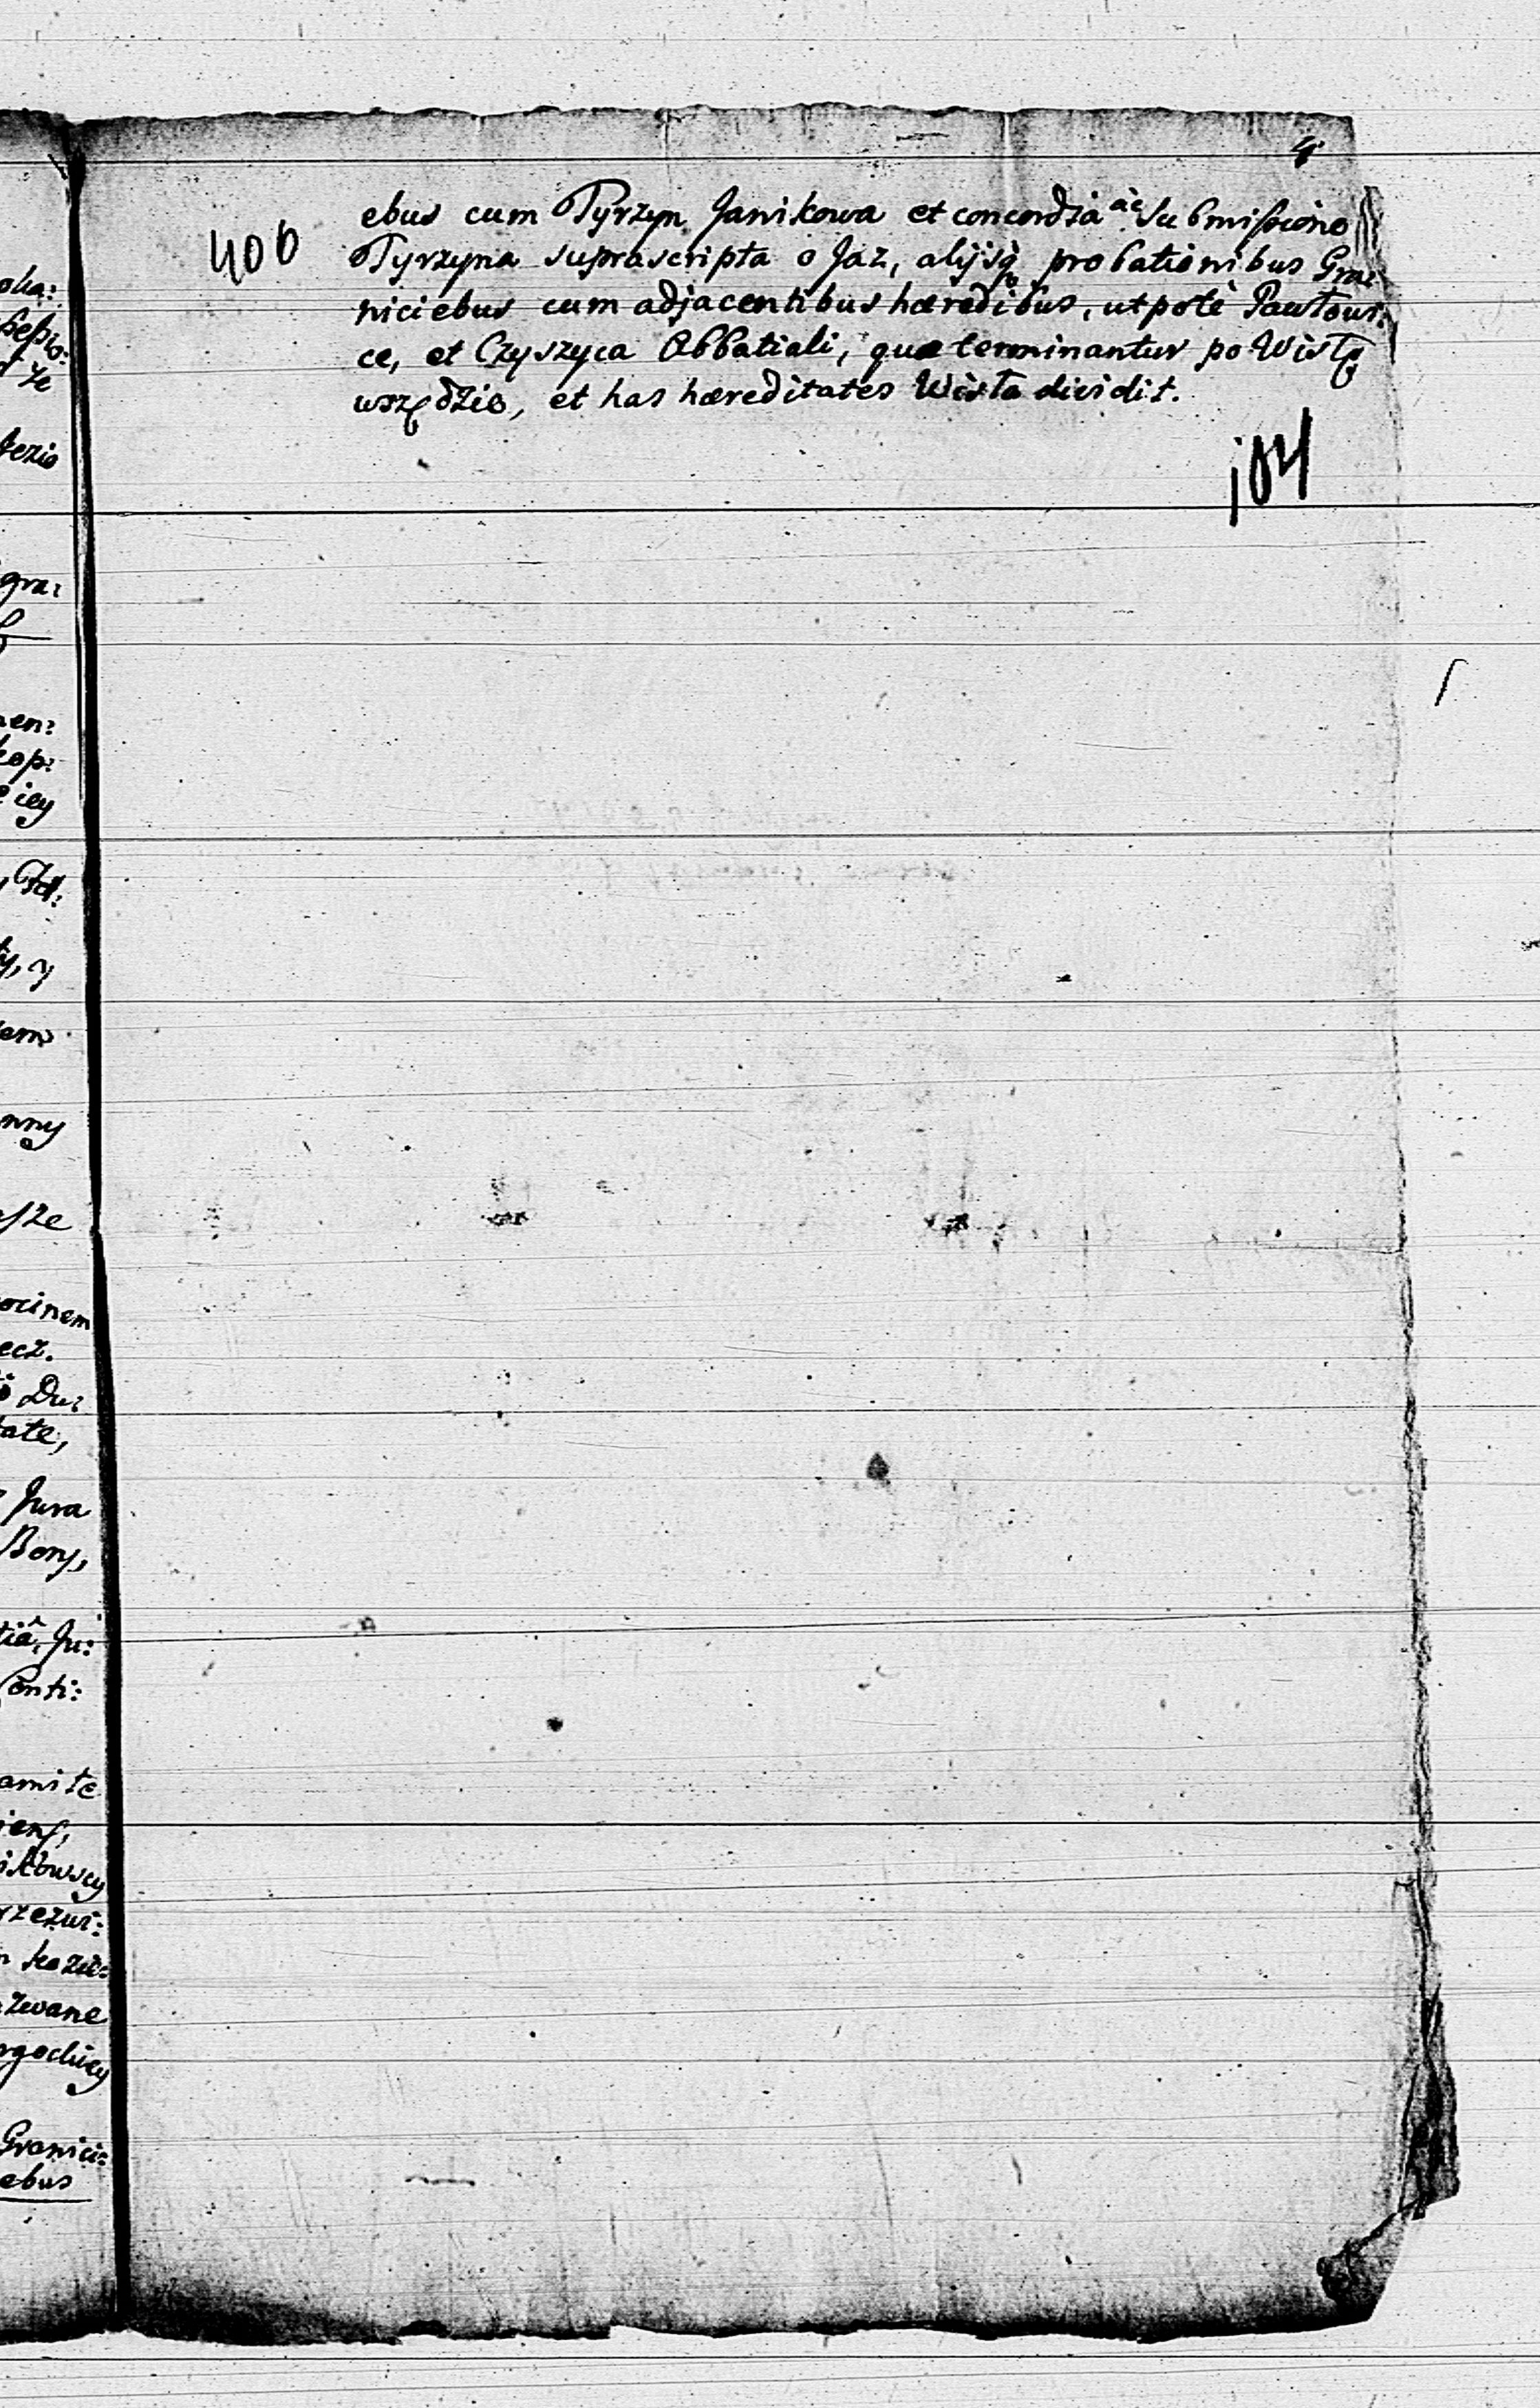 4
400
ebus cum Tyrzyn Janikowa et concordia ac Submißione
Tyrzyna suprascripta o Jaz, alijsq₃ probationibus Gra:
niciebus cum adjacentibus hæredibus, utpotè Pawłowi:
ce, et Czyszyca Abbatiali, quæ terminantur po Wisłę
wszędzie, et has hæreditates Wisła dividit.
104
że
gra:
men:
kop:
iey
ty, y
em
nny
ocinem
ecz.
Du:
tate,
Jura
Bony,
tiâ, Ju:
Conti:
amite
ienſ,
rzezwi:
zwane
Granici:
ebus